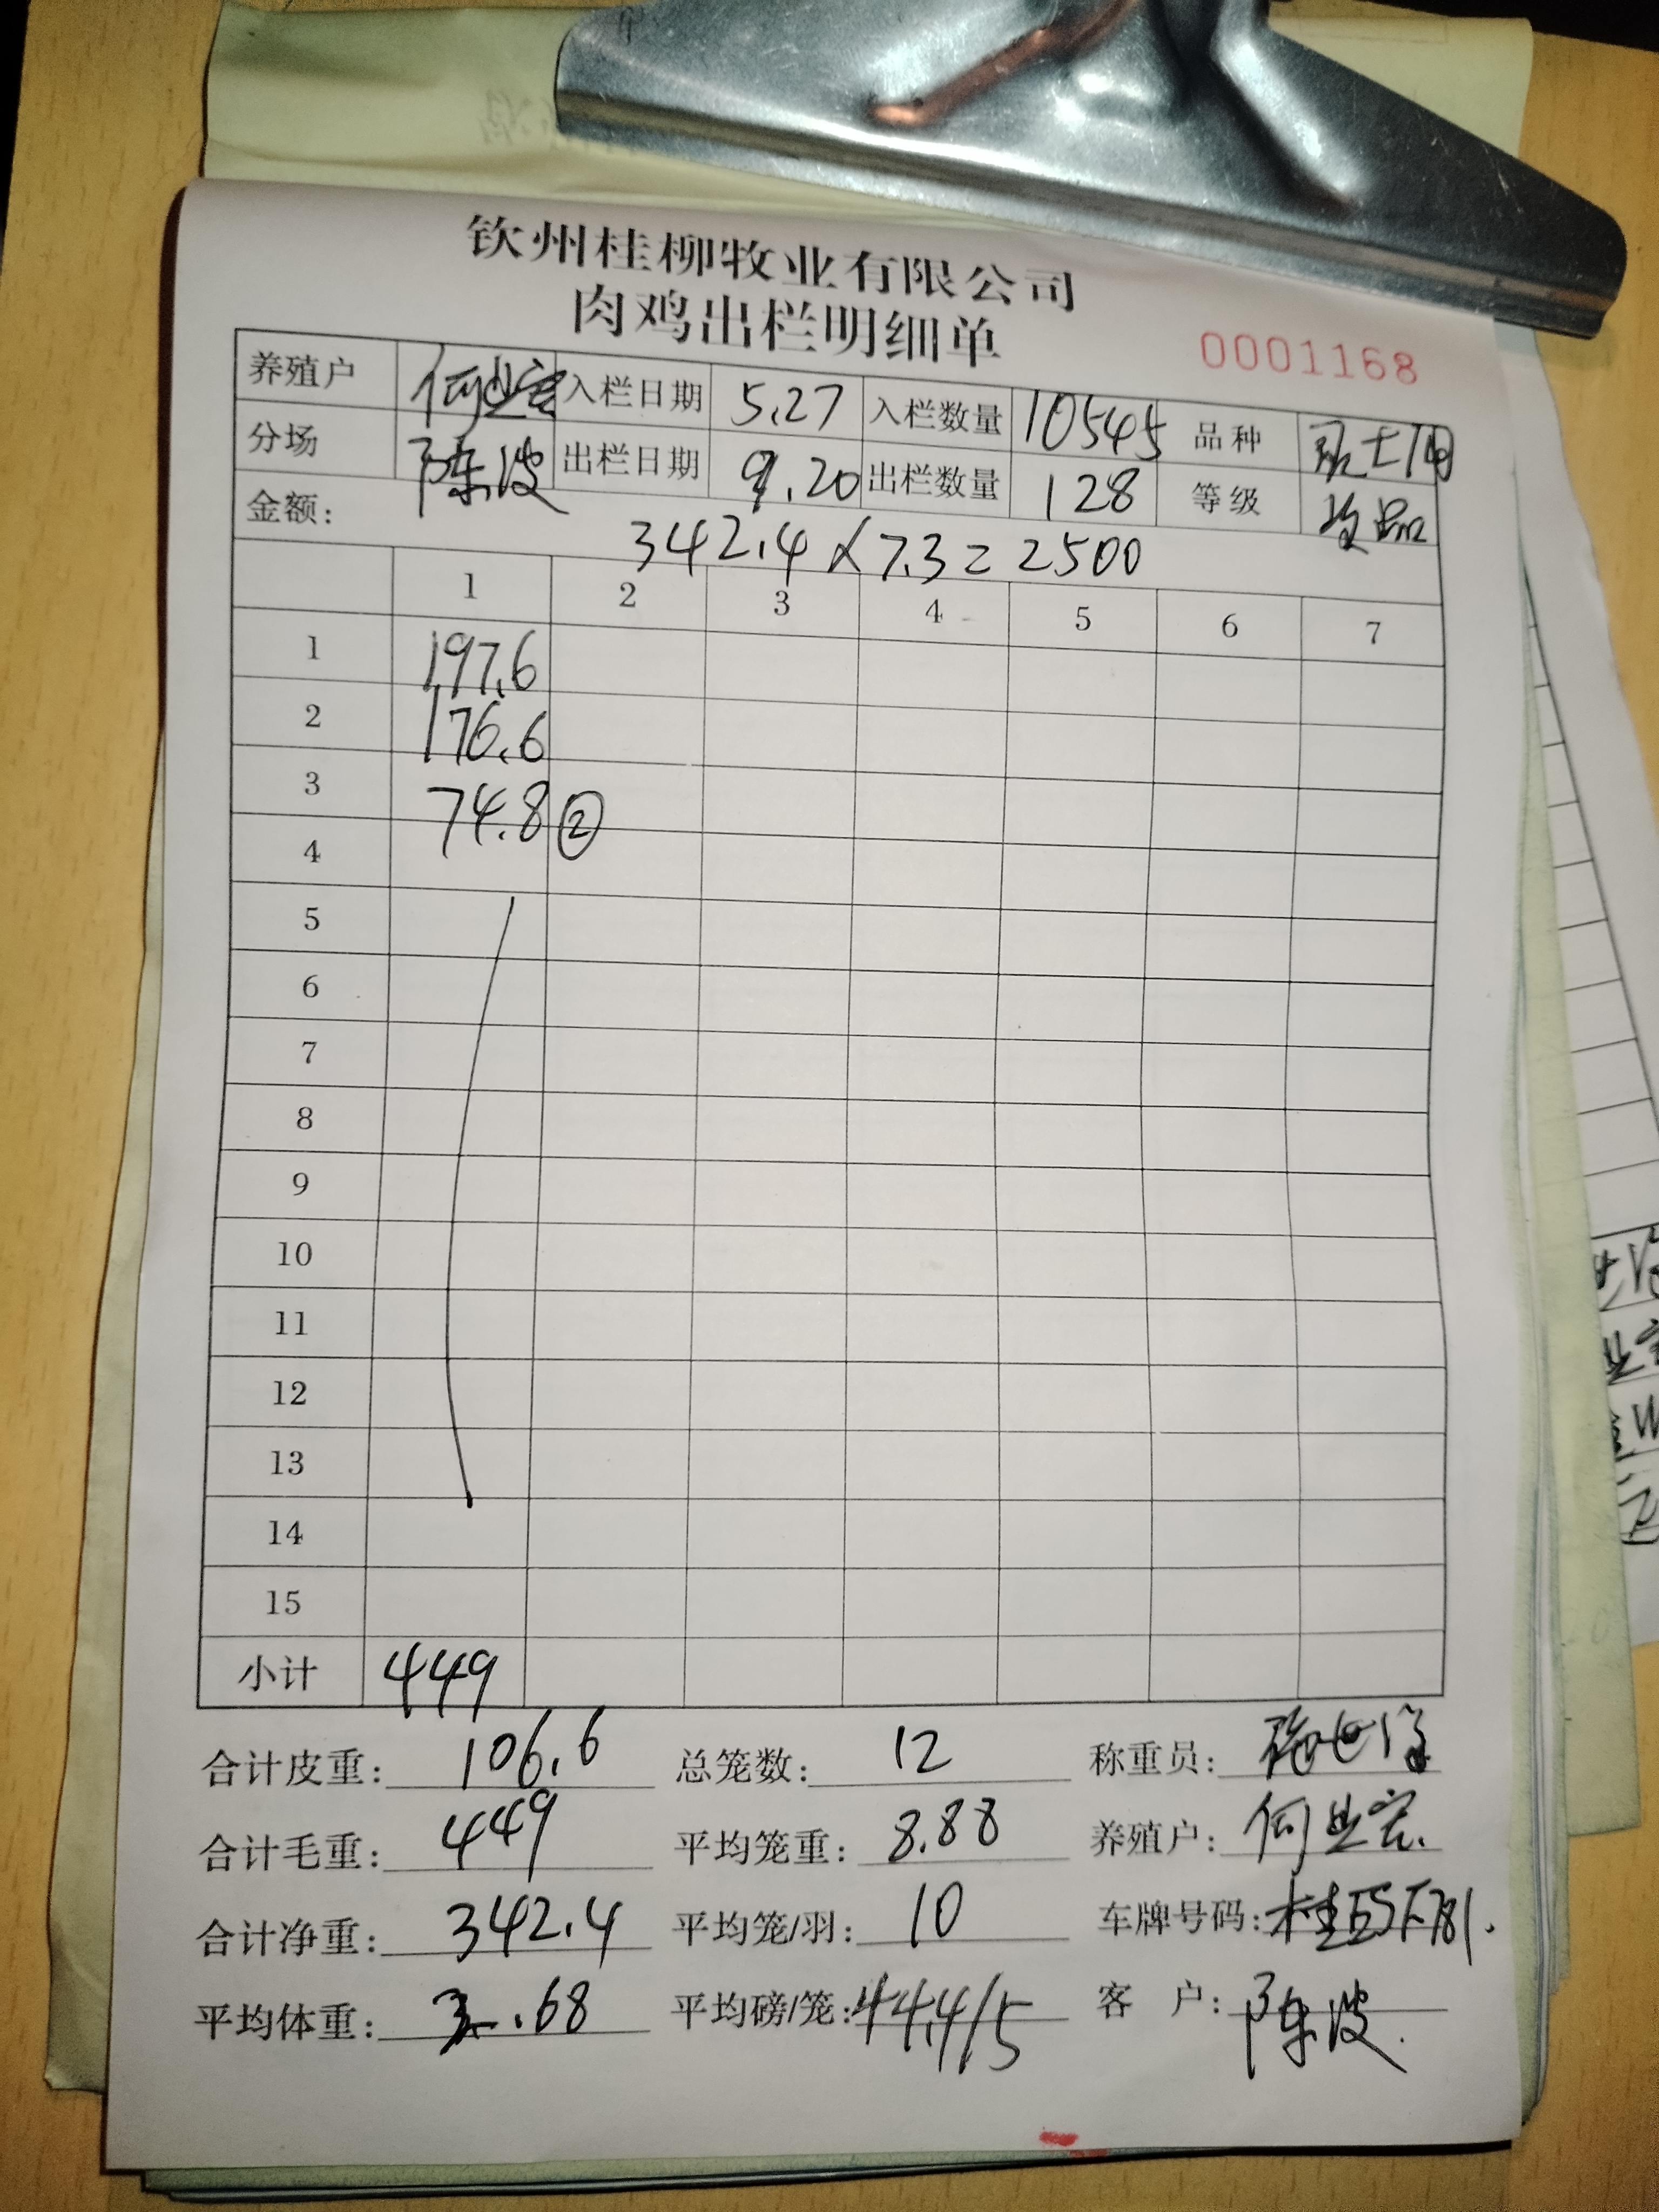 钦州桂柳牧业有限公司
肉鸡出栏明细单
0001168
养殖户 何业宏 入栏日期 5.27 入栏数量 10545 品种
分场 陈波 出栏日期 9.20 出栏数量 128 等级
金额: 342.4×7.3=2500
1 2 3 4 5 6 7
1 197.6
2 176.6
3 74.8 ②
4
5
6
7
8
9
10
11
12
13
14
15
小计 449
合计皮重: 106.6 总笼数: 12 称重员:
合计毛重: 449 平均笼重: 8.88 养殖户: 何业宏.
合计净重: 342.4 平均笼/羽: 10 车牌号码:
平均体重: 2.68 平均磅/笼: 44.4/5 客 户: 陈波.